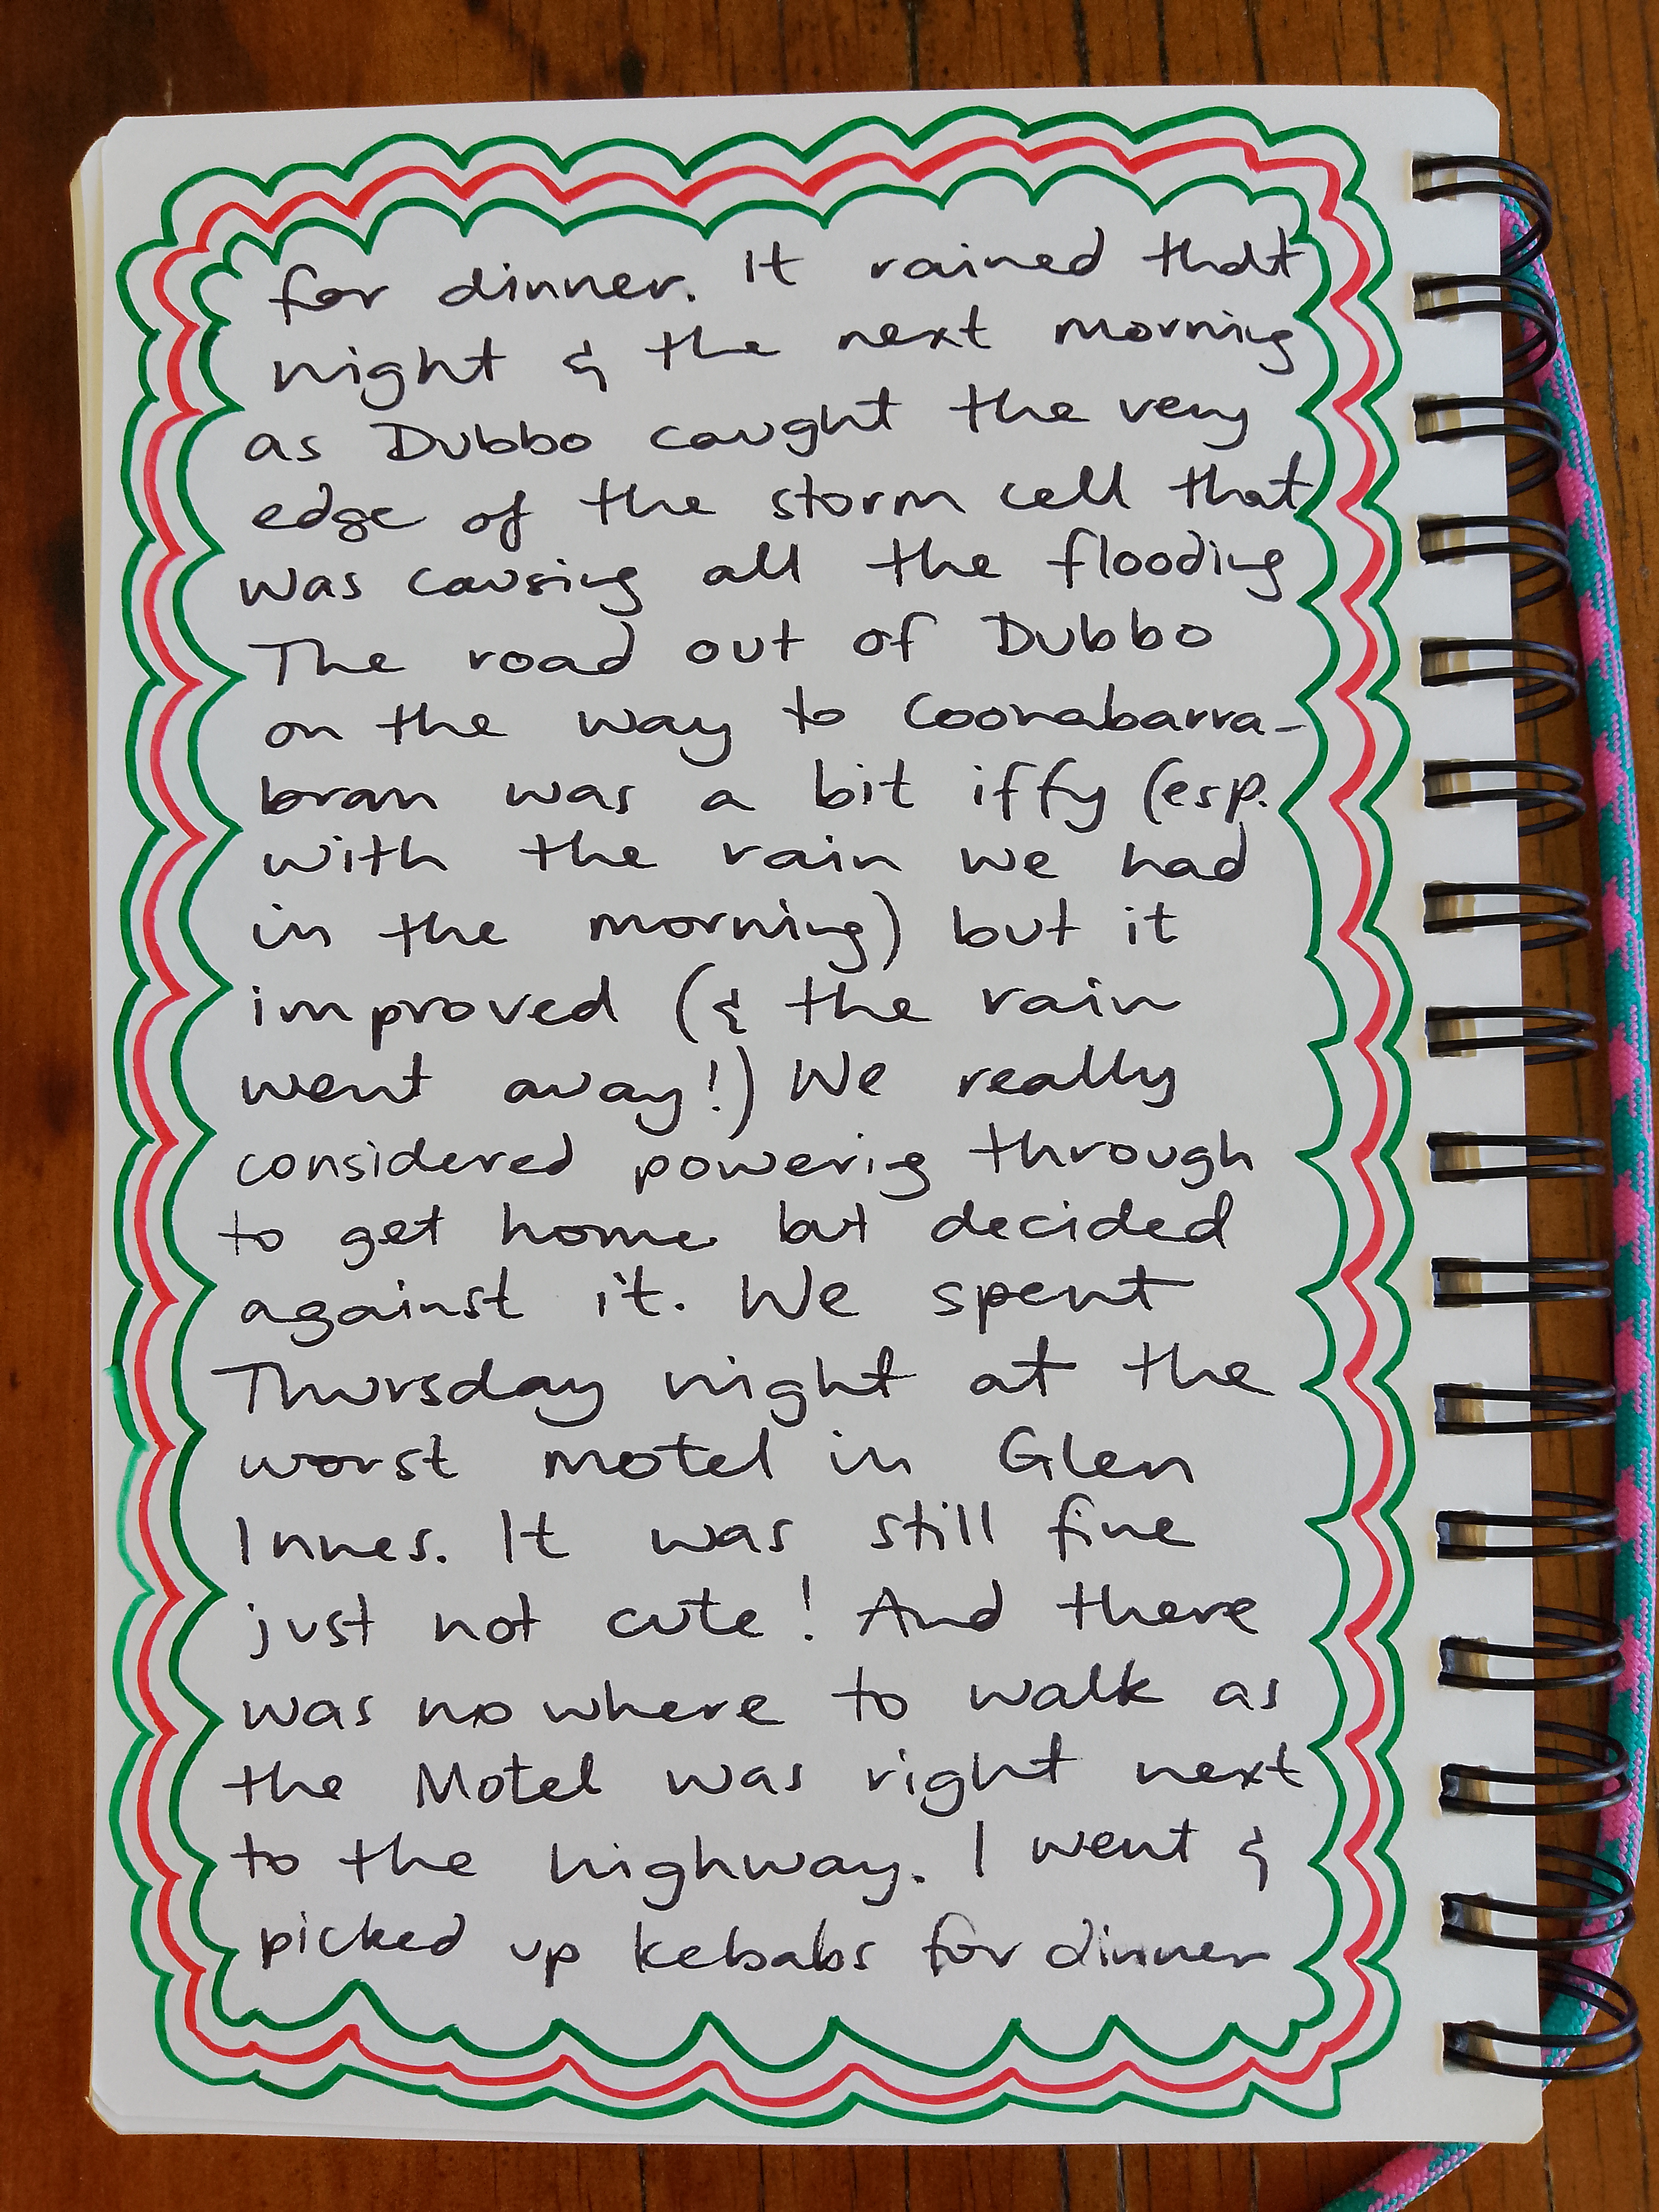 for dinner. It rained that
night & the next morning
as Dubbo caught the very
edge of the storm cell that
was causing all the flooding
The road out of Dubbo
on the way to Coonabarra-
bran was a bit iffy (esp.
with the rain we had
in the morning) but it
improved (& the rain
went away!) We really
considered powering through
to get home but decided
against it. We spent
Thursday night at the
worst motel in Glen
Innes. It was still fine
just not cute! And there
was nowhere to walk as
the Motel was right next
to the highway. I went &
picked up kebabs for dinner